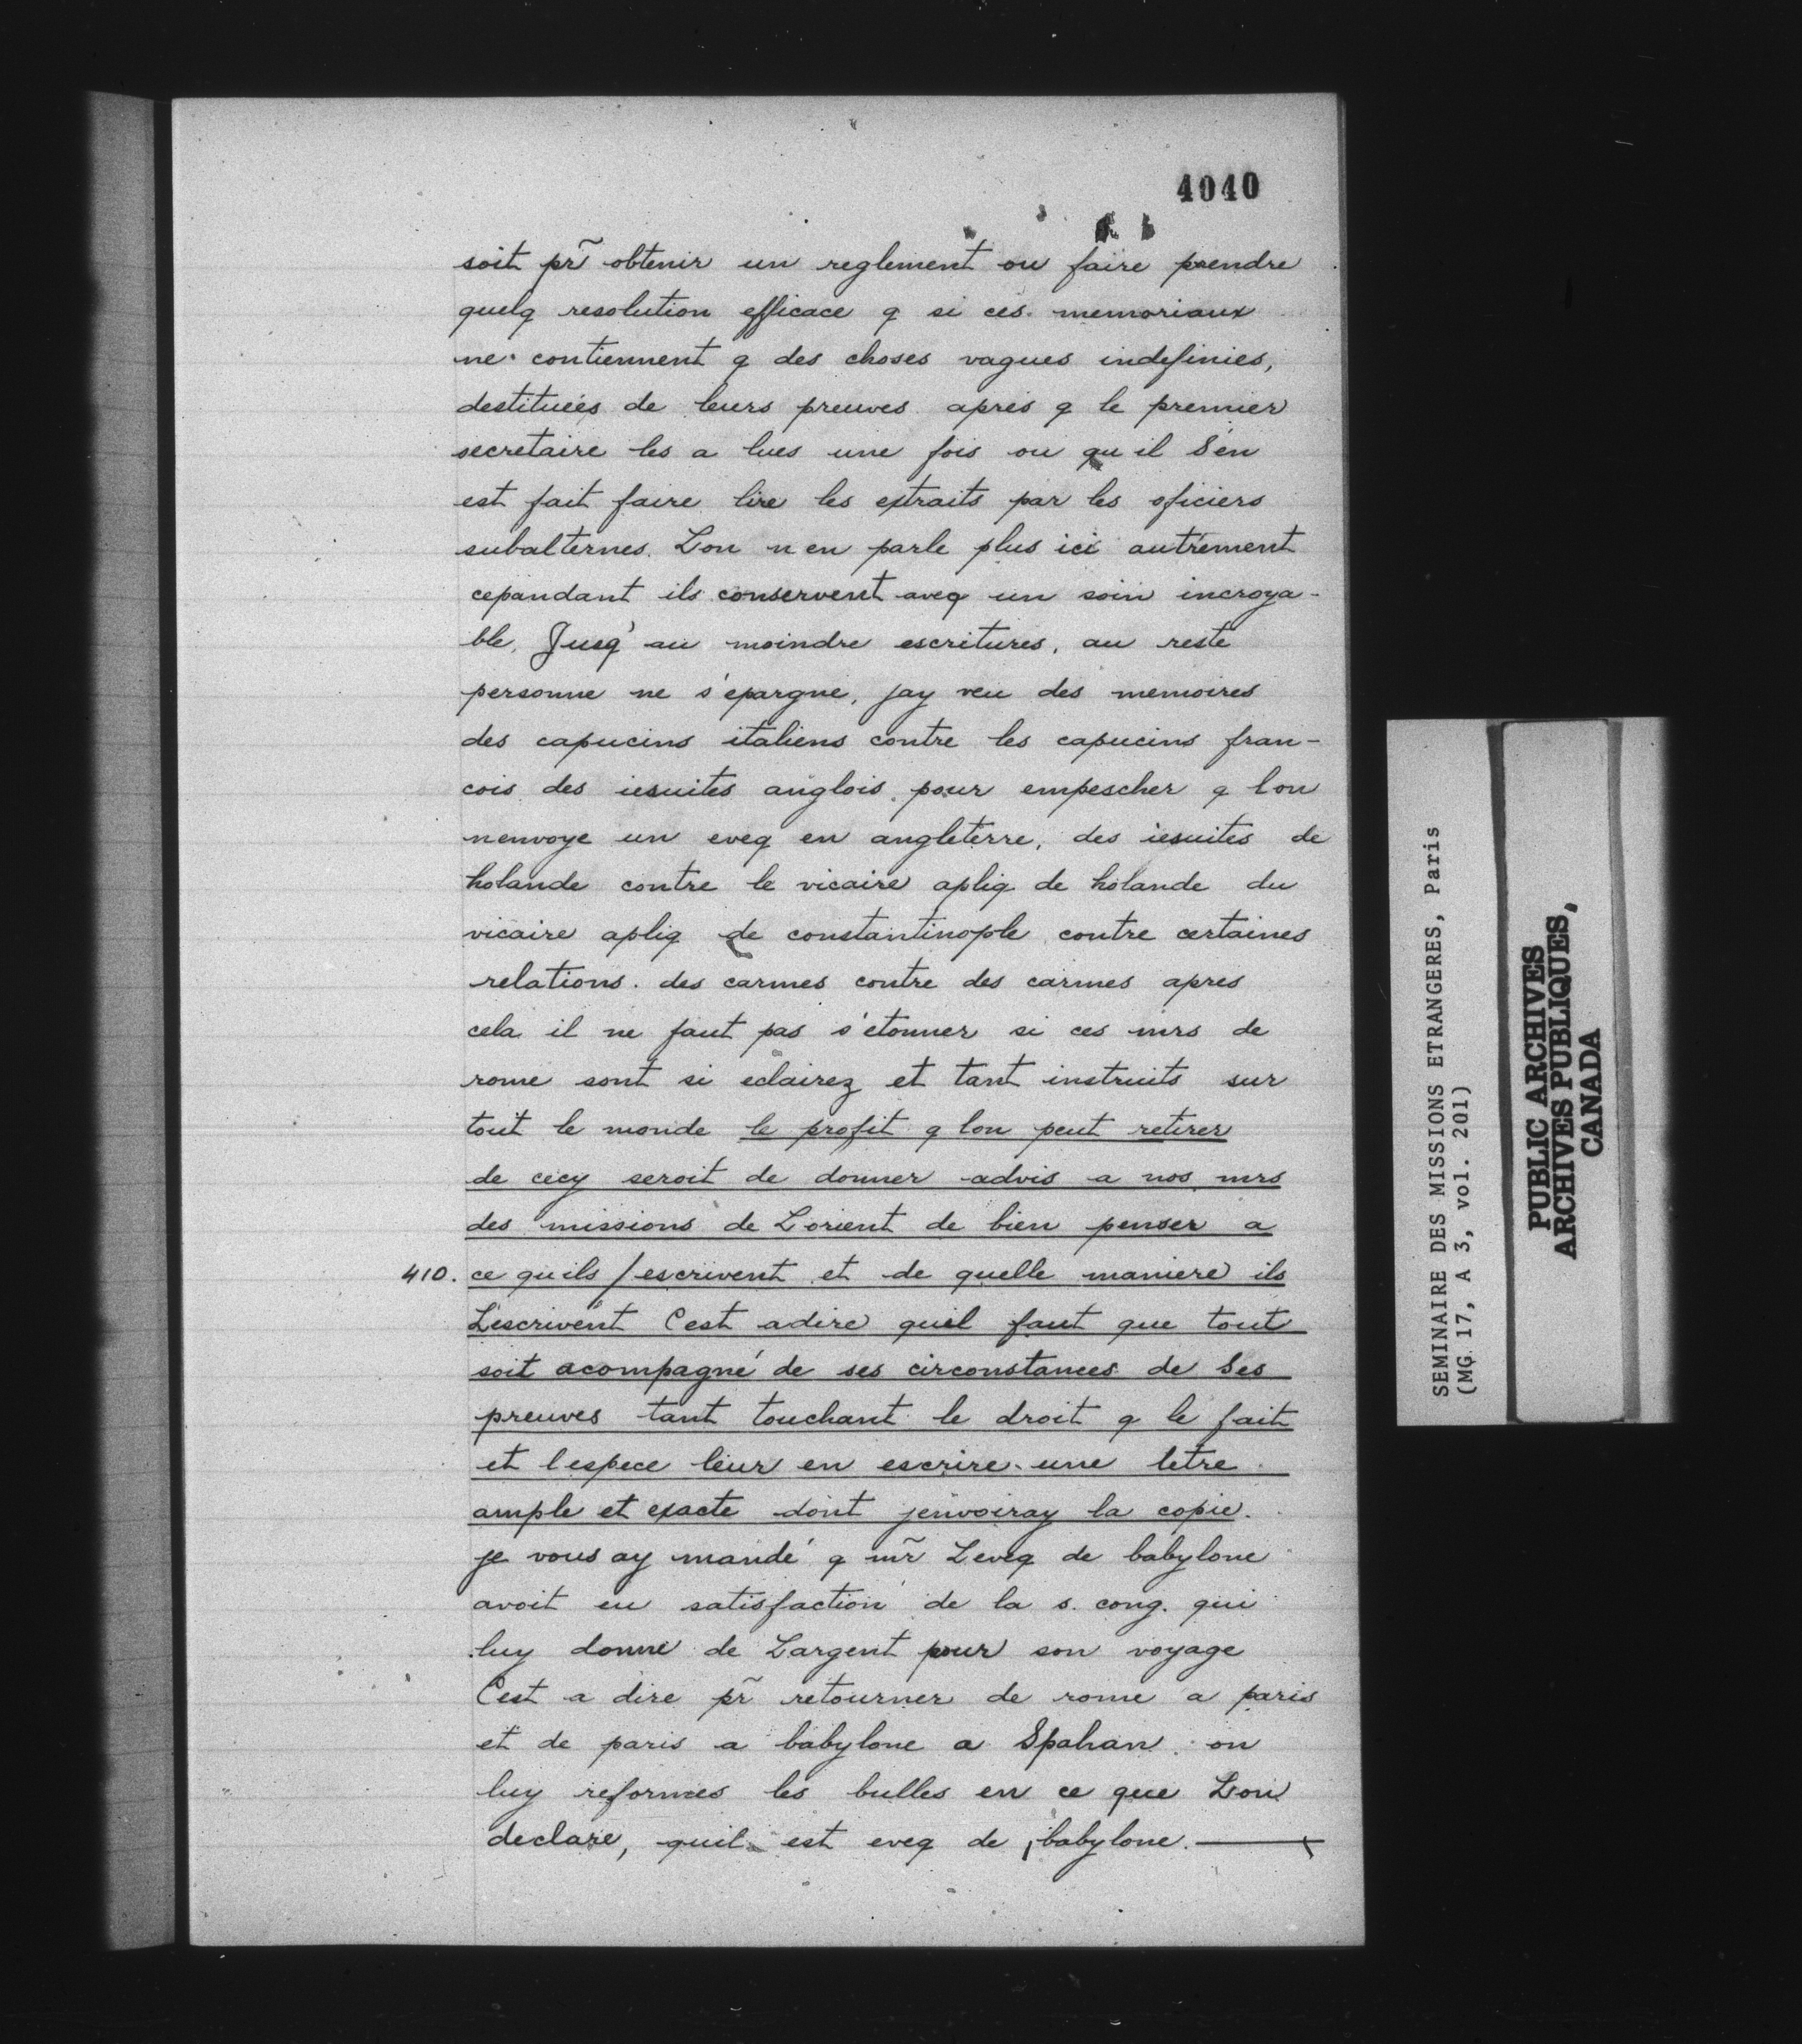 4040
soit pr̃ obtenir un reglement ou faire prendre
quelq resolution efficace q si ces memoriaux
ne contiennent q des choses vagues indefinies,
destituées de leurs preuves apres q le premier
secretaire les a lues une fois ou qu il S'en
est fait faire lire les extraits par les oficiers
subalternes. Lon n en parle plus ici autrement
cepandant ils conservent aveq un soin incroya-
ble, Jusq' au moindre escritures, au reste
personne ne s'epargne, jay veu des memoires
des capucins italiens contre les capucins fran-
cois des iesuites anglois pour empescher q lon
nenvoye un eveq en angleterre, des iesuites de
holande contre le vicaire apliq de holande du
vicaire apliq de constantinople contre certaines
relations. des carmes contre des carmes apres
cela il ne faut pas s'etonner si ces mrs de
rome sont si eclairez et tant instruits sur
tout le monde le profit q lon peut retirer
de cecy seroit de donner advis a nos mrs
des missions de Lorient de bien penser a
410. ce quils / escrivent et de quelle maniere ils
L'escrivent C'est adire quil faut que tout
soit acompagné de ses circonstances de Ses
preuves tant touchant le droit q le fait
et l'espece leur en escrire une letre
ample et exacte dont jenvoiray la copie.
je vous ay mandé q mr̃ Leveq de babylone
avoit eu satisfaction de la s. cong. qui
luy donne de Largent pour son voyage
C'est a dire pr̃ retourner de rome a paris
et de paris a babylone a Spahan. on
luy reformes les bulles en ce que Lon
declare, quil est eveq de babylone.
SEMINAIRE DES MISSIONS ETRANGERES, Paris
(MG 17, A 3, vol. 201)
PUBLIC ARCHIVES
ARCHIVES PUBLIQUES,
CANADA